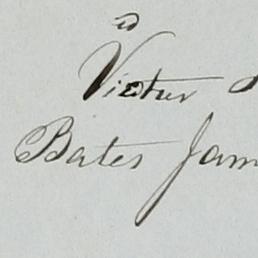 Victor
Bates Jam